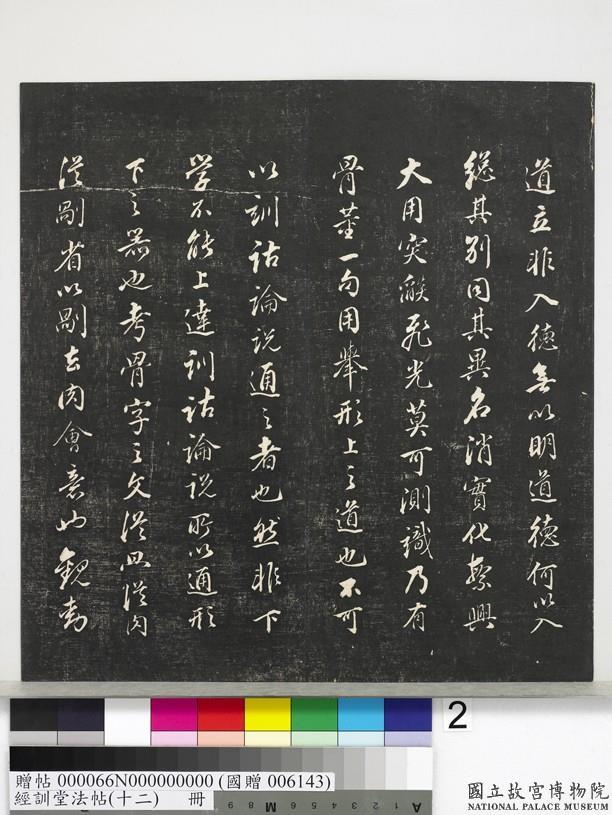 道立非入德無以明道德何以入
總其別同其異名消實化繫興
大用突飛光莫可測識乃有
骨董一句用舉形上之道也不可
以訓詁論說通之者也然非下
学不能上達訓詁論說所以通形
下之器也考骨字之文從冎從肉
從剮省以剮去肉會意此觀動
2
贈帖 000066N000000000 (國贈 006143)
經訓堂法帖(十二) 冊
國立故宮博物院
NATIONAL PALACE MUSEUM